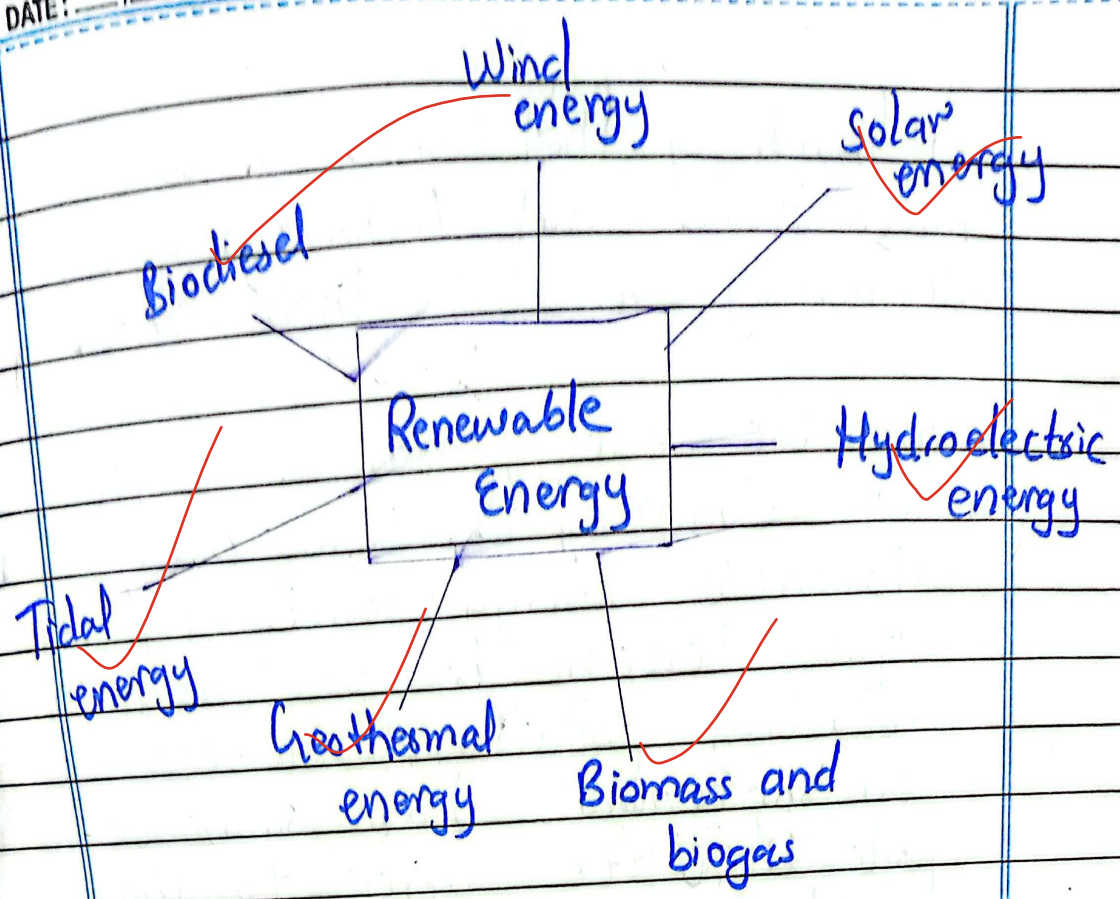 DATE:
Wind
energy
Solar
energy
Biodiesel
Renewable
Energy
Hydroelectric
energy
Tidal
energy
Geothermal
energy
Biomass and
biogas